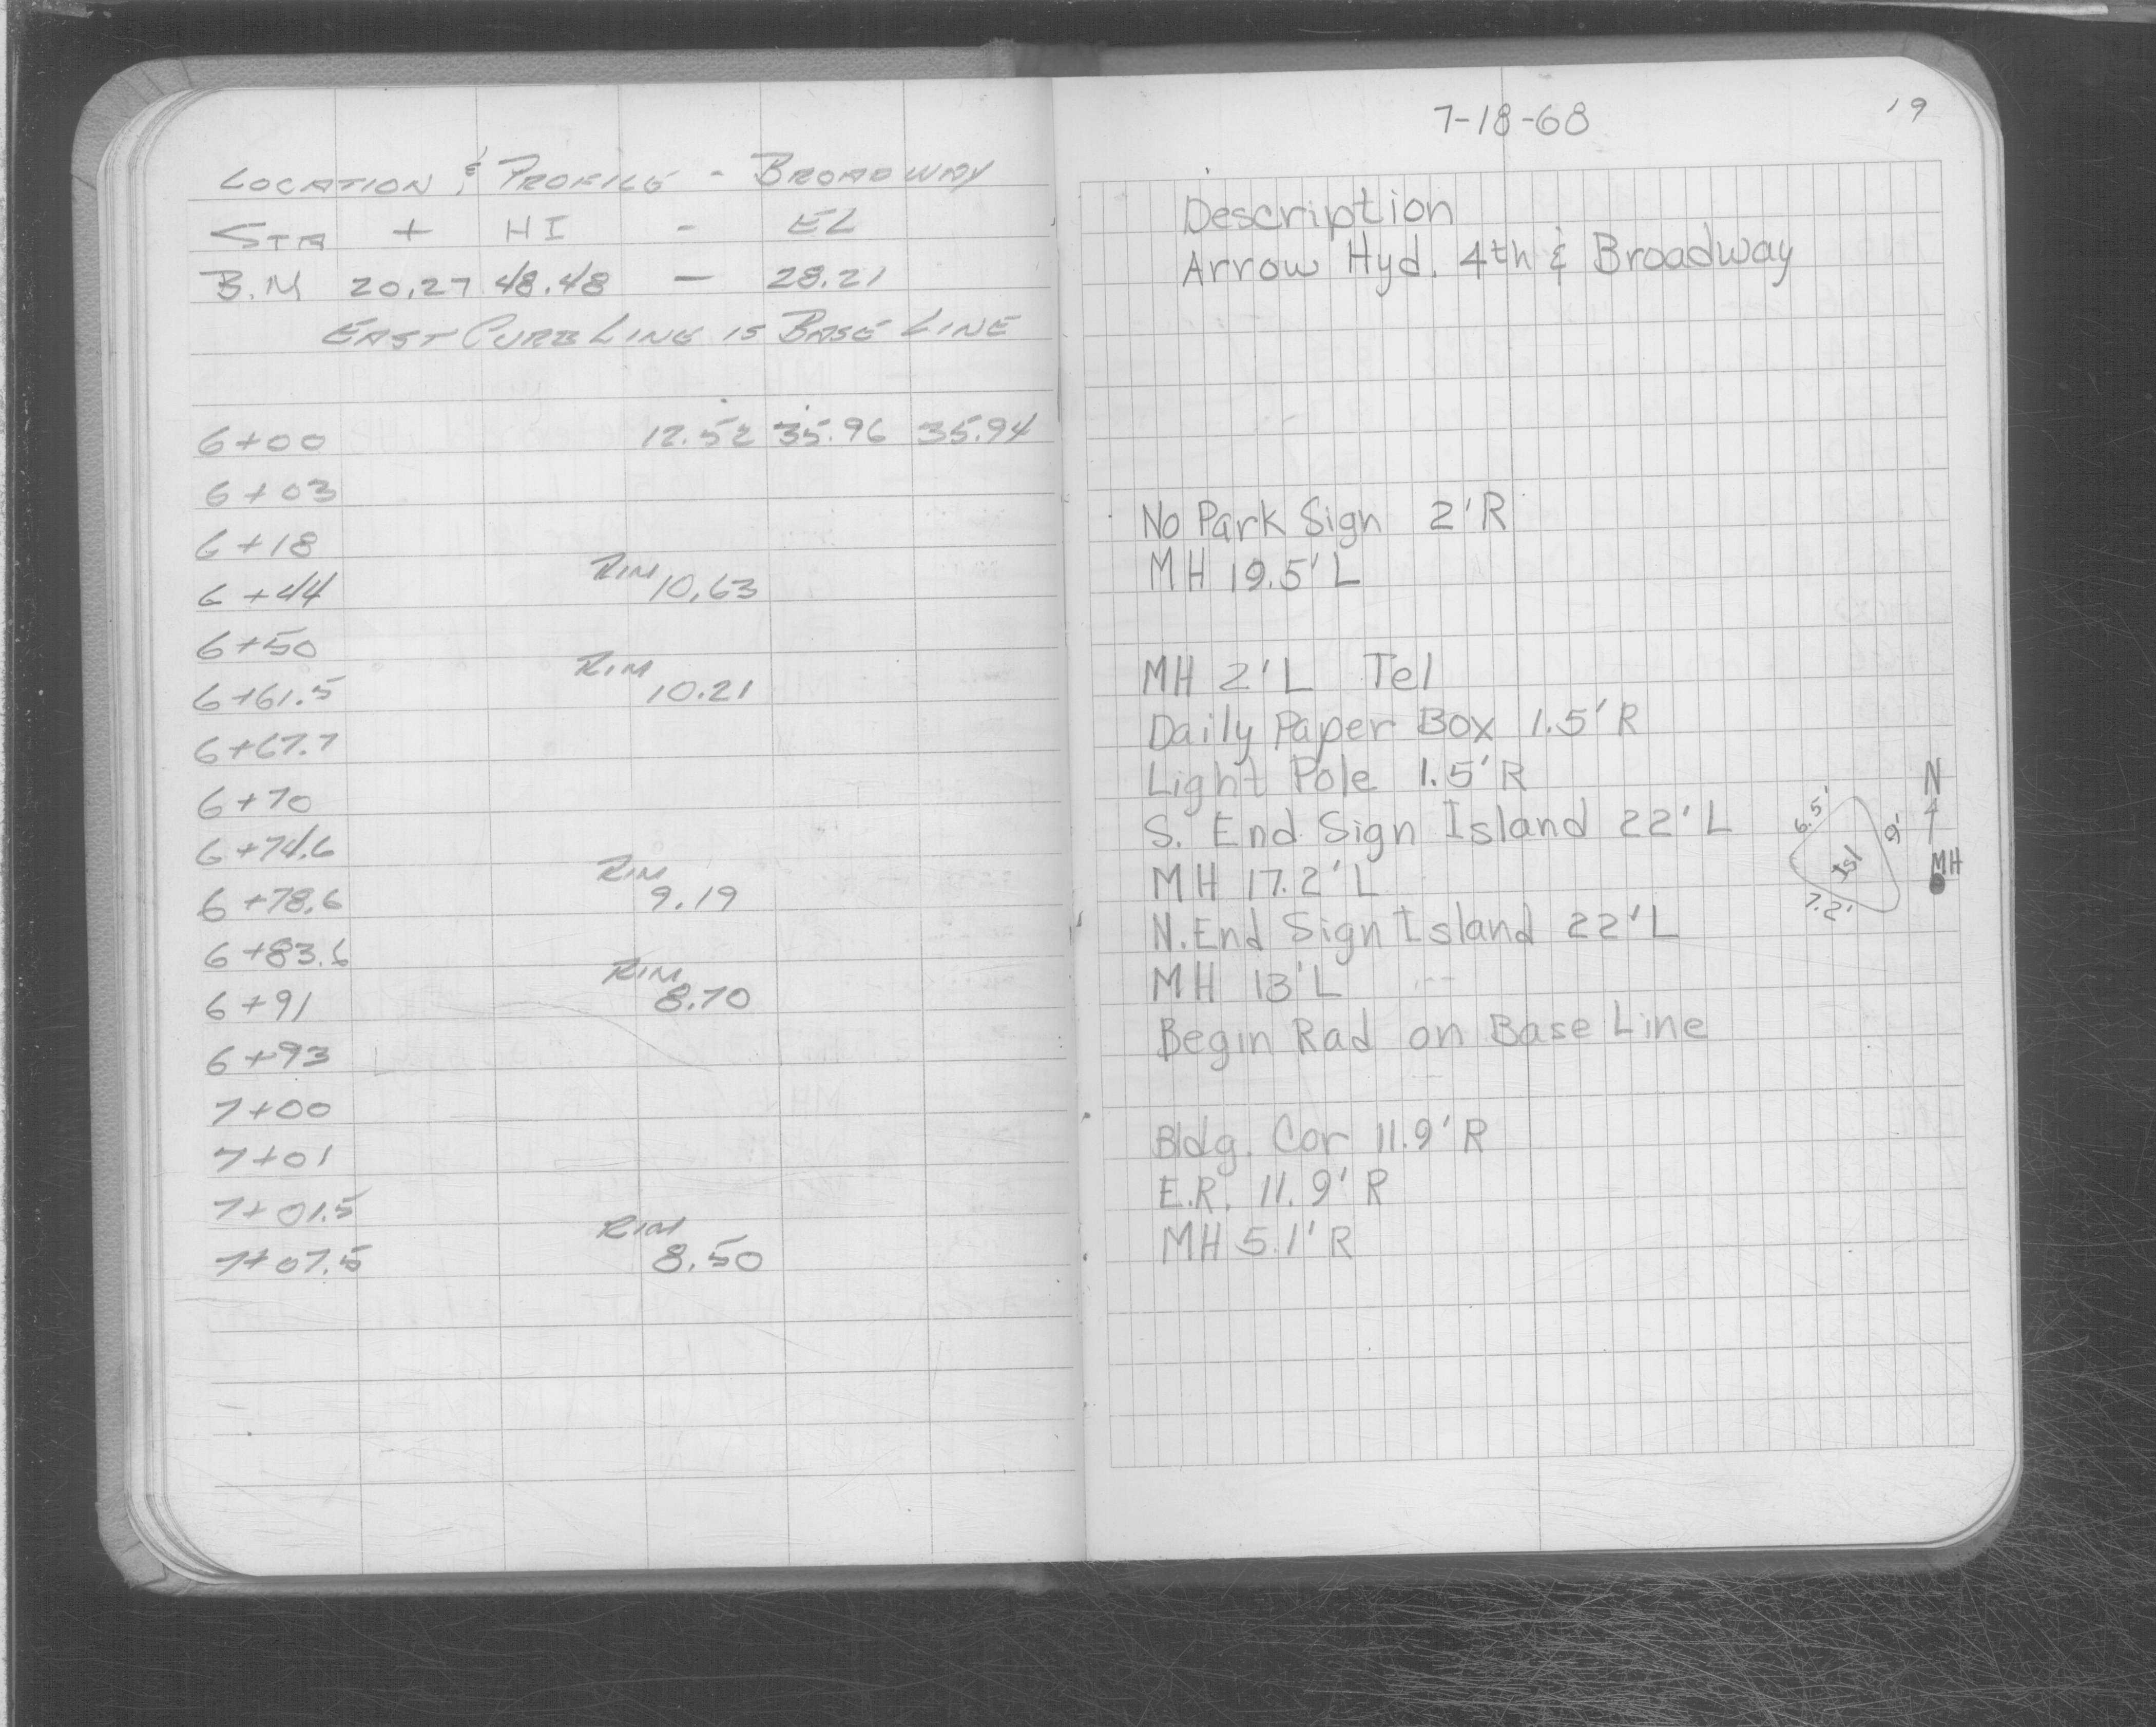 LOCATION & PROFILE - BROADWAY
STA + HI - EL
B.M 20.27 48.48 — 28.21
EAST CURB LINE IS BASE LINE
6+00 12.52 35.96 35.94
6+03
6+18
6+44 RIM 10.63
6+50
6+61.5 RIM 10.21
6+67.7
6+70
6+74.6
6+78.6 RIM 9.19
6+83.6
6+91 RIM 8.70
6+93
7+00
7+01
7+01.5
7+07.5 RIM 8.50
7-18-68
19
Description
Arrow Hyd. 4th & Broadway
No Park Sign 2'R
MH 19.5'L
MH 2'L Tel
Daily Paper Box 1.5'R
Light Pole 1.5'R
S. End Sign Island 22'L
MH 17.2'L
N. End Sign Island 22'L
MH 13'L
Begin Rad on Base Line
Bldg. Cor 11.9'R
E.R. 11.9'R
MH 5.1'R
N
6.5'
9'
Isl
MH
7.2'